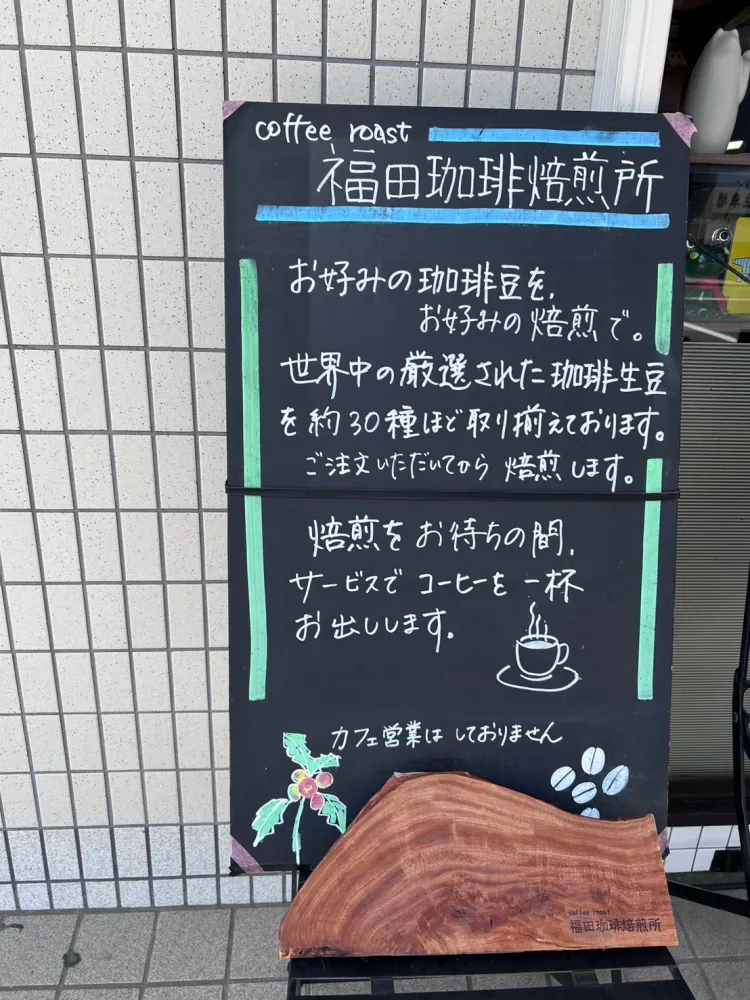 coffee roast
福田珈琲焙煎所
お好みの珈琲豆を、
お好みの焙煎で。
世界中の厳選された珈琲生豆
を約30種ほど取り揃えております。
ご注文いただいてから焙煎します。
焙煎をお待ちの間、
サービスでコーヒーを一杯
お出しします。
カフェ営業はしておりません
coffee roast
福田珈琲焙煎所